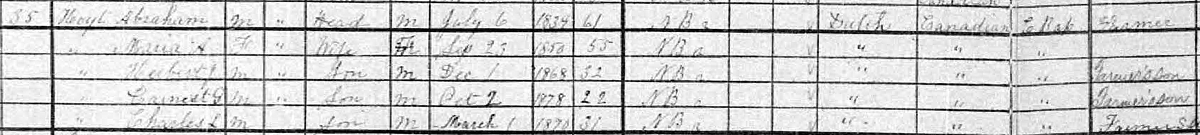 35 Hoyt Abraham M " Head M July 6 1834 61 NB a Dutch Canadian Farmer
" Maria A F " Wife Sep 23 1850 55 NB a " "
" Herbert J M " Son M Dec 1 1868 32 NB a " " " Farmer's son
" Earnest G M " Son M Oct 2 1878 22 NB a " " " Farmer's son
" Charles L M Son M March 1 1870 31 NB a " " "